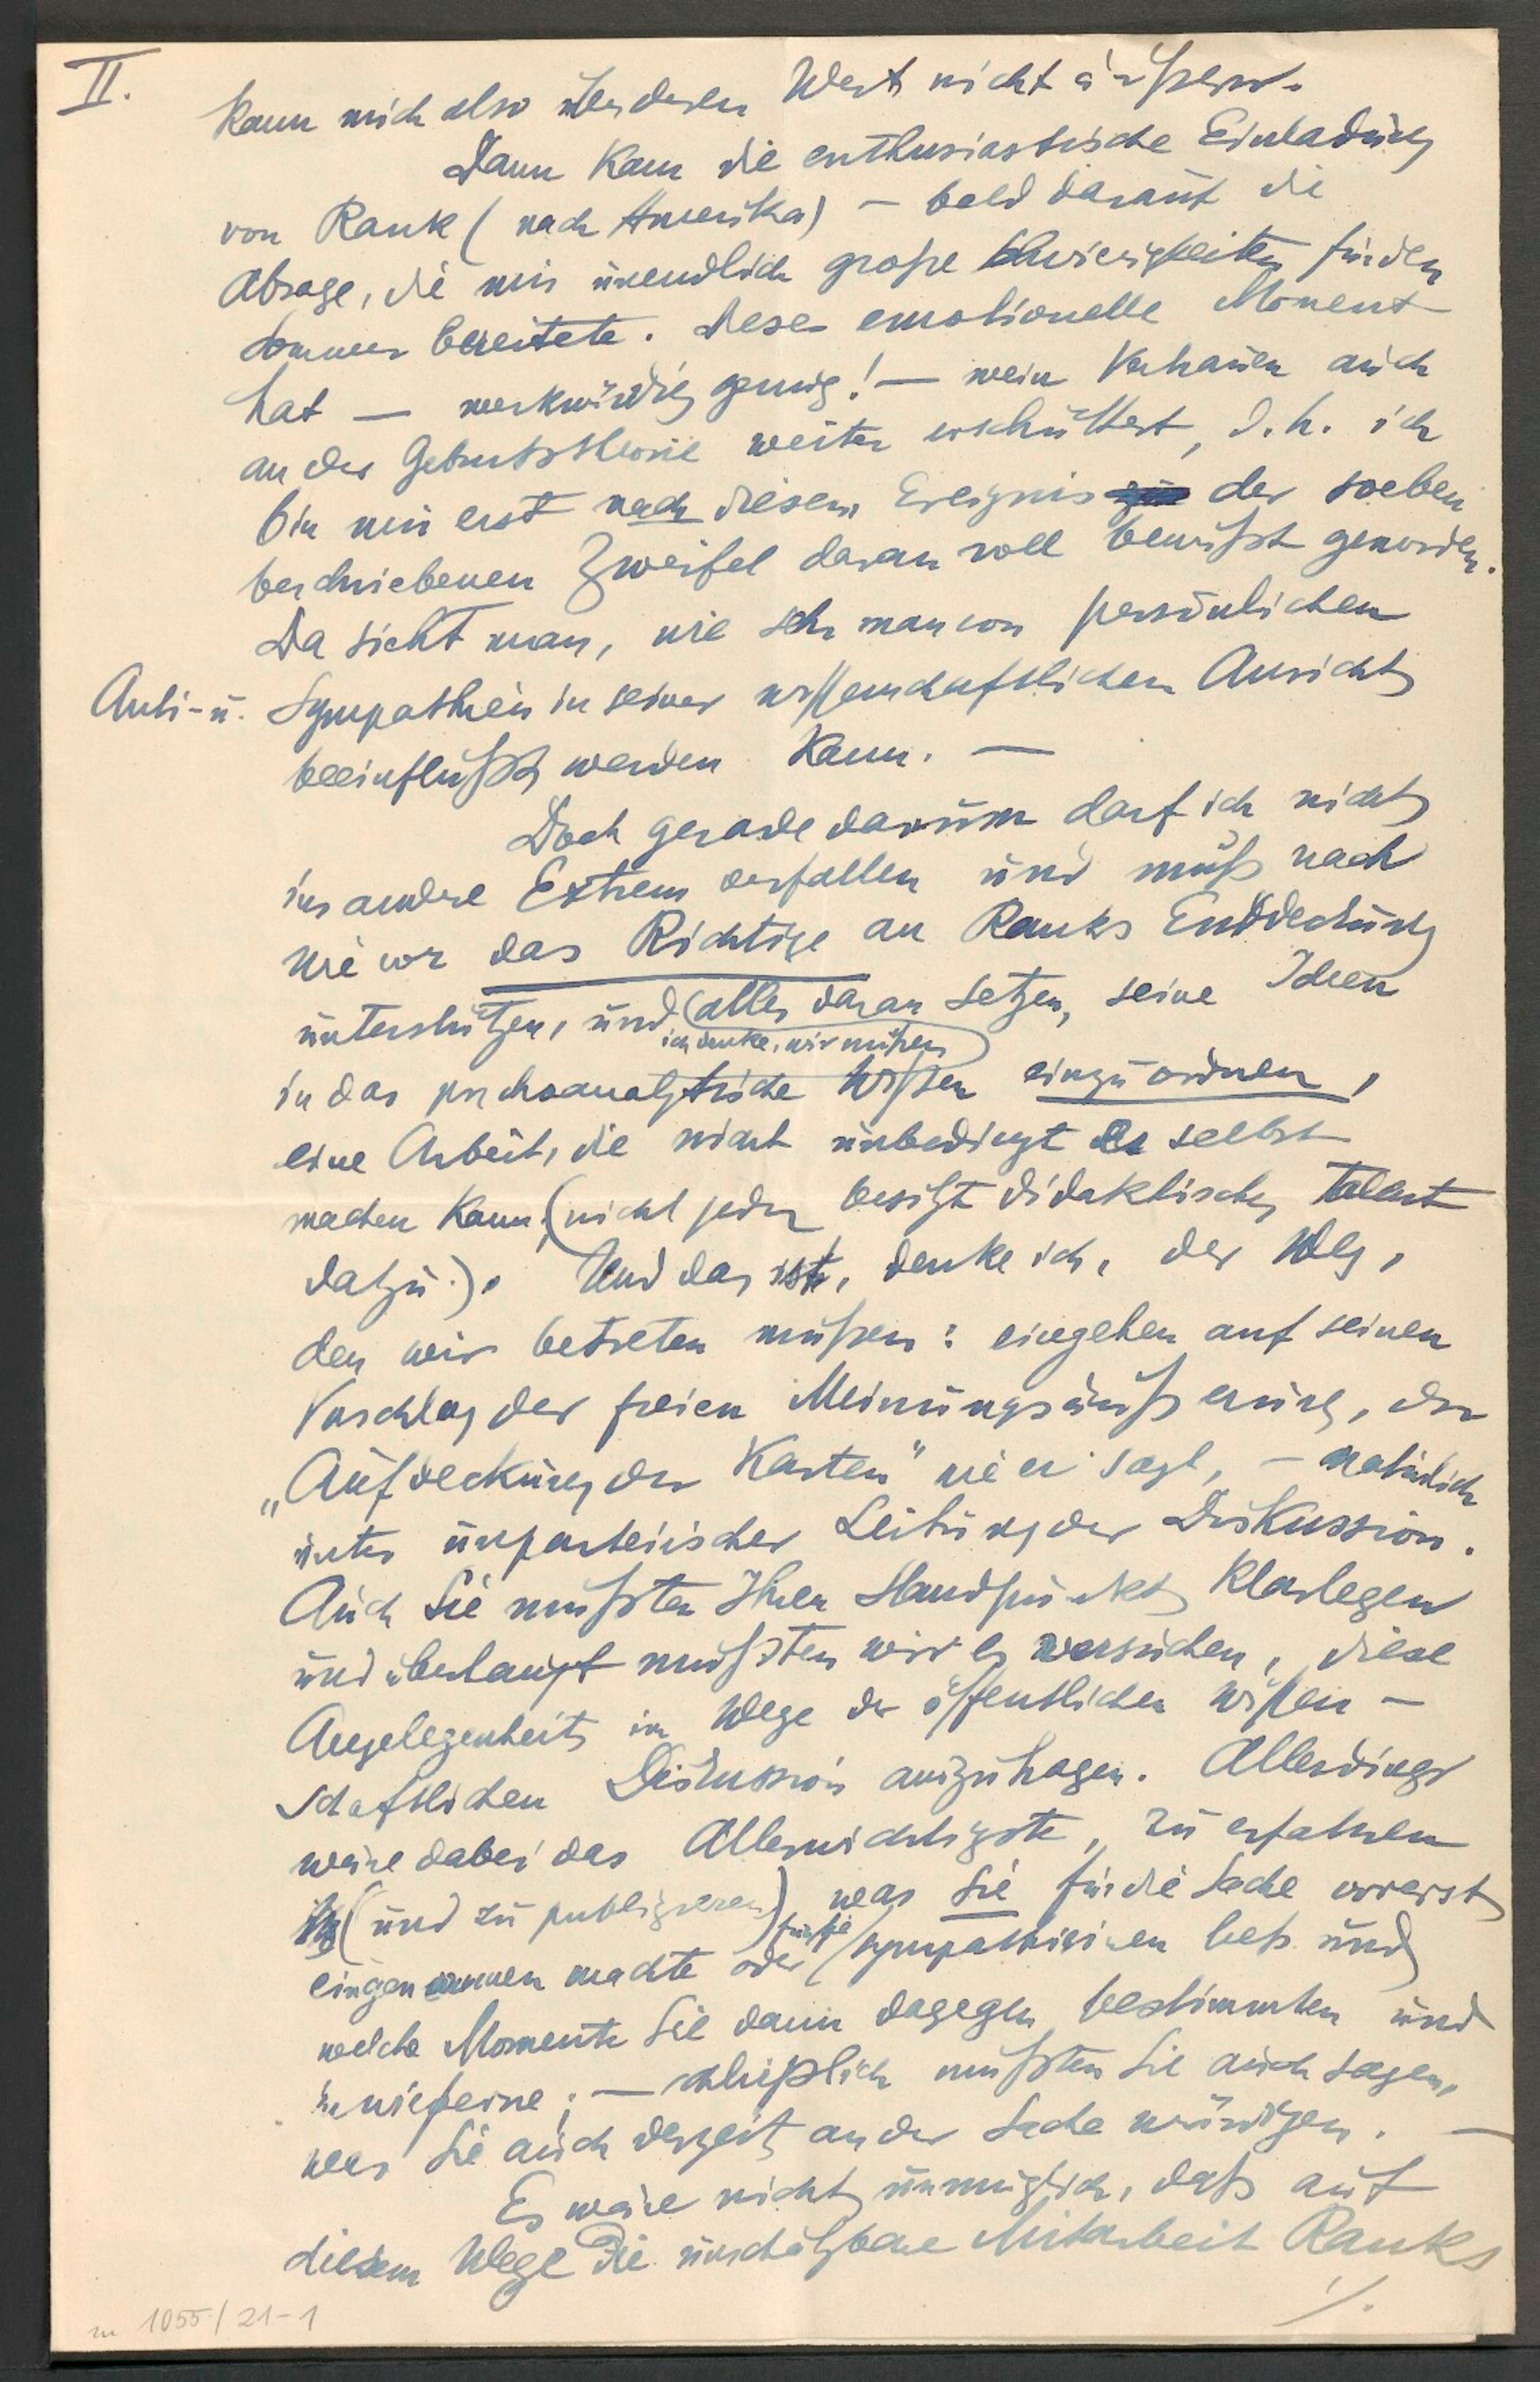 II.
kann mich also über deren Wert nicht äußern.
Dann kam die enthusiastische Einladung
von Rank (nach Amerika) – bald darauf die
Absage, die mir unendlich große Schwierigkeiten für den
Sommer bereitete. Dieses emotionelle Moment
hat – merkwürdig genug! – mein Vertrauen auch
an der Geburtstheorie weiter erschüttert, d.h. ich
bin mir erst nach diesem Ereignis der soeben
beschriebenen Zweifel daran voll bewußt geworden.
Da sieht man, wie sehr man von persönlichen
Anti- u. Sympathien in seiner wissenschaftlichen Ansicht
beeinflußt werden kann. –
Doch gerade darum darf ich nicht
ins andere Extrem verfallen und muß nach
wie vor das Richtige an Ranks Entdeckung
unterstützen, und (alles daran setzen, seine Ideen
ich denke, wir müßen)
in das psychoanalytische Wißen einzuordnen,
eine Arbeit, die nicht unbedingt er selbst
machen kann, (nicht jeder besitzt didaktisches Talent
datzu.). Und das ist, denke ich, der Weg,
den wir betreten müßen: eingehen auf seinen
Vorschlag der freien Meinungsäußerung, der
„Aufdeckung der Karten" wie er sagt, – natürlich
unter unparteiischer Leitung der Diskussion.
Auch Sie müßten Ihren Standpunkt klarlegen
und überhaupt müßten wir es versuchen, diese
Angelegenheit im Wege der öffentlichen wißen-
schaftlichen Diskussion auszutragen. Allerdings
wäre dabei das Allerwichtigste, zu erfahren
(und zu publizieren) was Sie für die Sache vorerst
für sie
eingenommen machte oder sympathisieren ließ und
welche Momente Sie dann dagegen bestimmten und
inwieferne; – schließlich müßten Sie auch sagen,
was Sie auch derzeit an der Sache würdigen. –
Es wäre nicht unmöglich, daß auf
diesem Wege die unschätzbare Mitarbeit Ranks
./.
1055/21-1